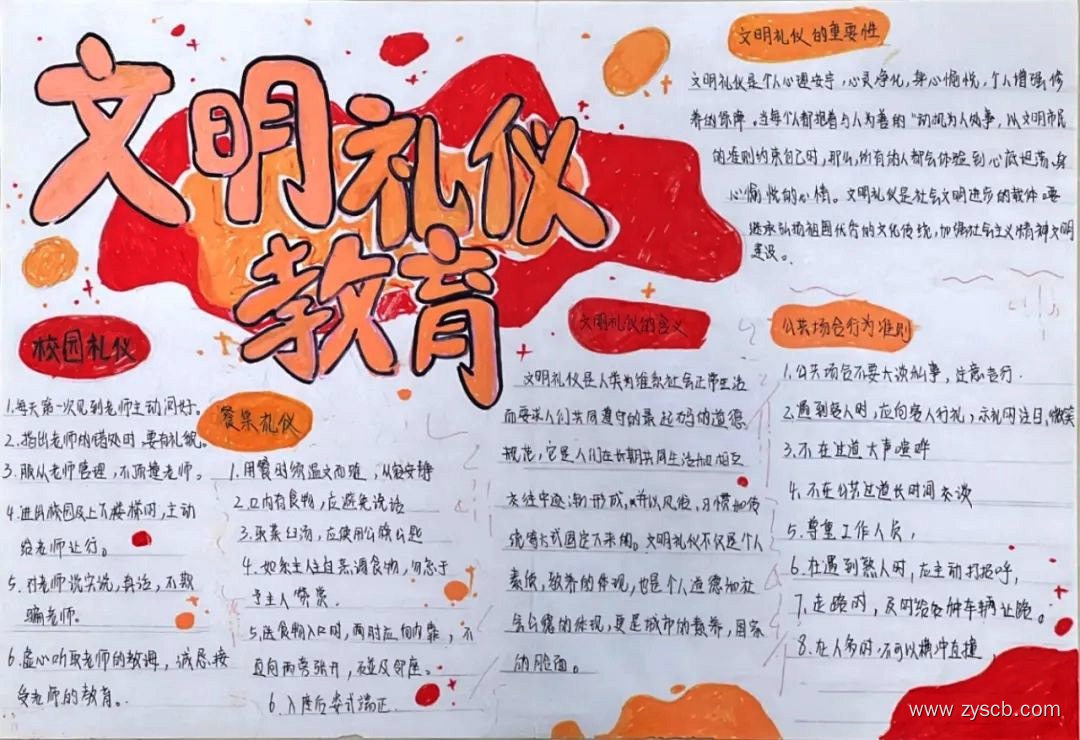 文明礼仪
教育
文明礼仪的重要性
文明礼仪是个人心理安宁,心灵净化,身心愉悦,个人增强修
养的保障。当每个人都抱着与人为善的"动机为人做事,以文明市民
的准则约束自己时,那么,所有的人都会体验到心底坦荡、身
心愉悦的心情。文明礼仪是社会文明进步的载体,要
继承弘扬祖国优秀的文化传统,加强社会主义精神文明
建设。
校园礼仪
1.每天第一次见到老师主动问好。
2.指出老师的错处时,要有礼貌。
3.服从老师管理,不顶撞老师。
4.进出校园及上下楼梯时,主动
给老师让行。
5.对老师说实说,真话,不欺
骗老师。
6.虚心听取老师的教诲,诚恳接
受老师的教育。
餐桌礼仪
1.用餐时须温文而雅,从容安静
2.口内有食物,应避免说话
3.取菜舀汤,应使用公筷公匙
4.如系主人亲自烹调食物,勿忘予
予主人赞赏.
5.送食物入口时,两肘应向内靠,不
直向两旁张开,碰及邻座。
6.入座后姿式端正.
文明礼仪的含义
文明礼仪是人类为维系社会正常生活
而要求人们共同遵守的最起码的道德
规范,它是人们在长期共同生活和相互
交往中逐渐形成,并以风俗、习惯和传
统等方式固定下来的。文明礼仪不仅是个人
素质,教养的体现,也是个人道德和社
会公德的体现,更是城市的素养,国家
的脸面。
公共场合行为准则
1.公共场合不要大谈私事,注意言行.
2.遇到客人时,应向客人行礼,示礼网注目,微笑
3.不在过道大声喧哗
4.不在公共过道长时间交谈
5.尊重工作人员,
6.在遇到熟人时,应主动打招呼,
7.走路时,及时给各种车辆让路。
8.在人多时,不可以横冲直撞,
www.zyscb.com